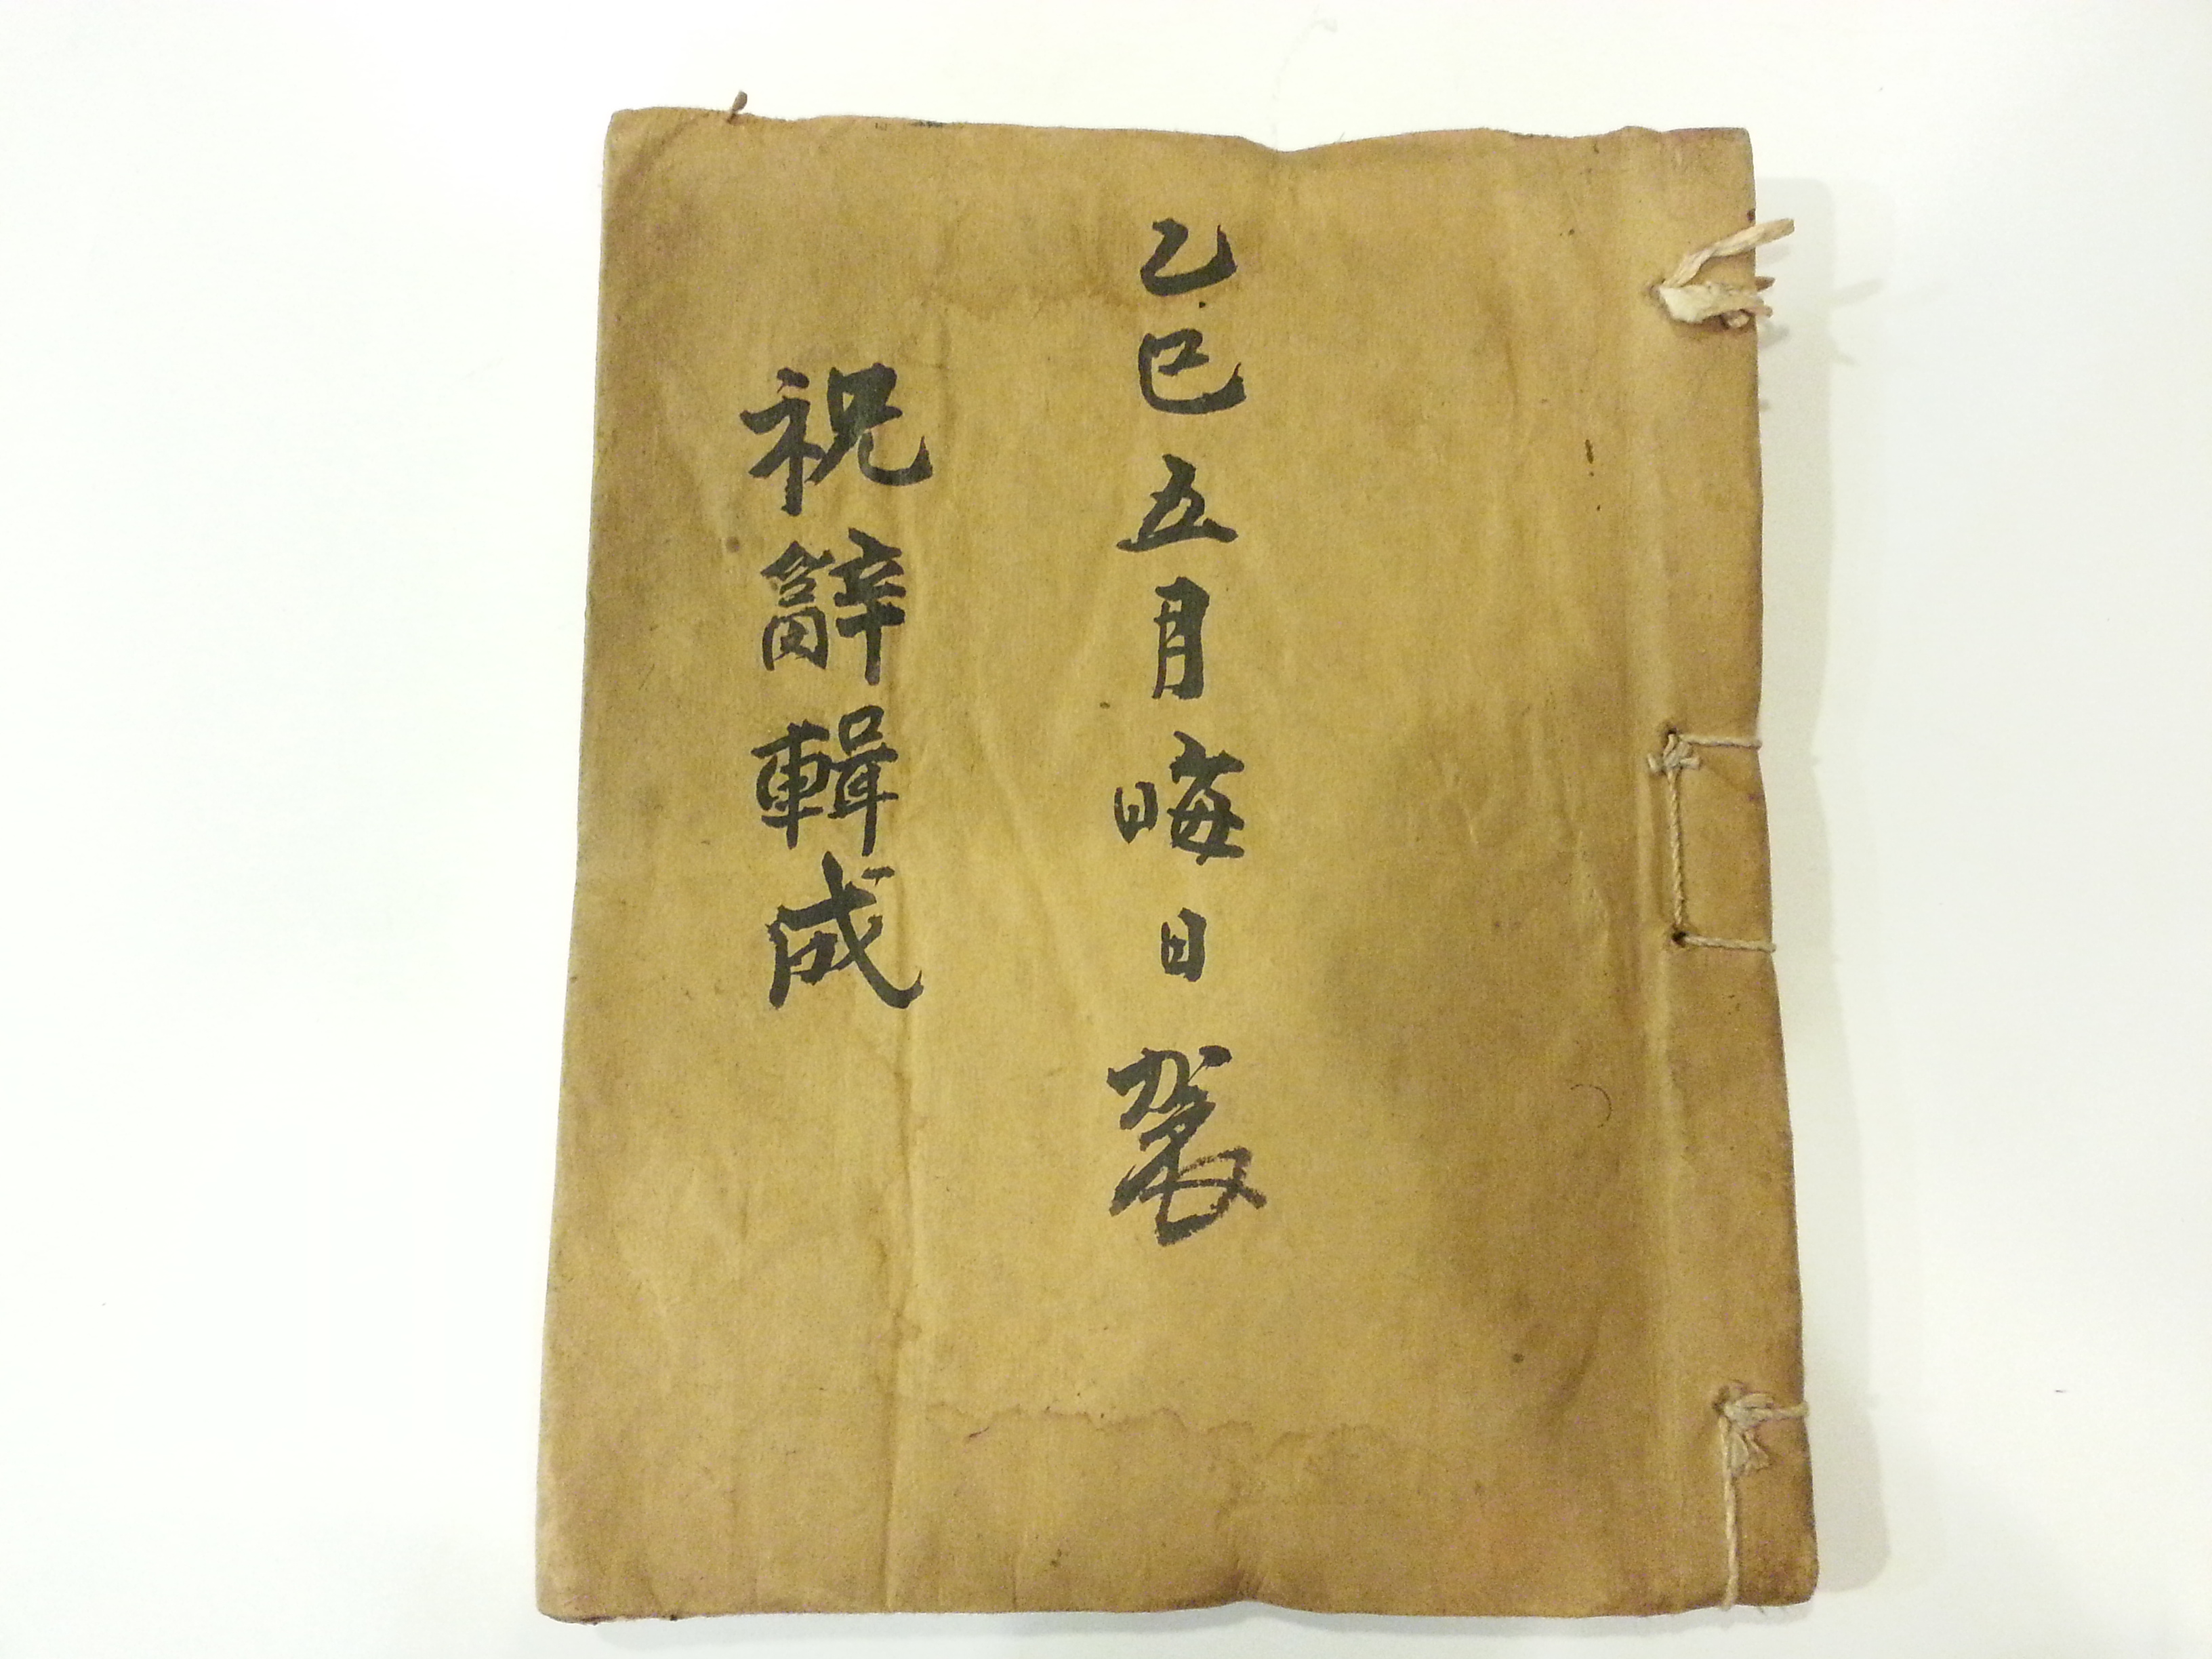 乙巳五月晦日
祝辭輯成